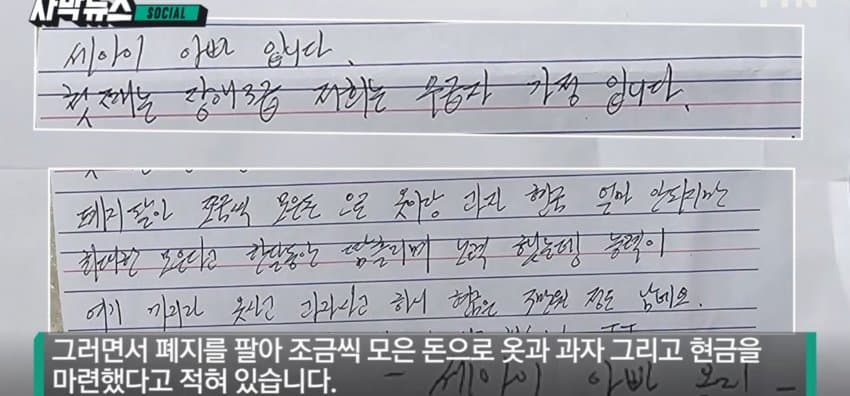 자막뉴스 SOCIAL
YTN
세아이 아빠 입니다.
첫째는 장애3급 저희는 수급자 가정 입니다.
폐지팔아 조금씩 모은돈 으로 옷이랑 과자 현금 얼마 안되지만
최대한 모은다고 한달동안 땀흘리며 노력 했는데 능력이
여기 까지라 옷사고 과자사고 하니 현금은 3만원 정도 남네요.
그러면서 폐지를 팔아 조금씩 모은 돈으로 옷과 과자 그리고 현금을
마련했다고 적혀 있습니다.
세아이 아빠 올림 -